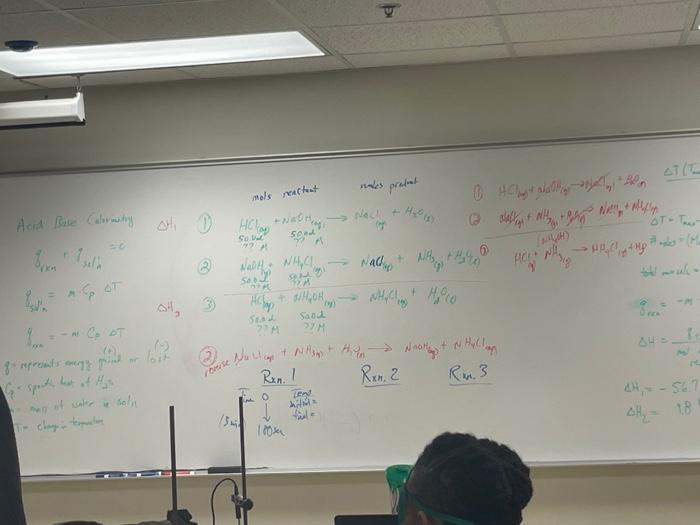 mols reactant moles product
Acid Base Calorimetry
q rxn + q sol'n = 0
q sol'n = m · Cp ΔT
q rxn = -m · Cp ΔT
q = represents energy gained (+) or lost (-)
Cp = specific heat of H2O
m = mass of water in sol'n
T = change in temperature
ΔH1
① HCl(aq) + NaOH(aq) → NaCl(aq) + H2O(l)
50.0ml 50.0ml
?? M ?? M
② NaOH(aq) + NH4Cl(aq) → NaCl(aq) + NH3(aq) + H2O(l)
50.0ml 50.0ml
?? M ?? M
③ HCl(aq) + NH4OH(aq) → NH4Cl(aq) + H2O(l)
50.0ml 50.0ml
?? M ?? M
② reverse NaCl(aq) + NH3(aq) + H2O(l) → NaOH(aq) + NH4Cl(aq)
Rxn. 1 Rxn. 2 Rxn. 3
Time Temp
0 initial =
↓ final =
180sec
① HCl(aq) + NaOH(aq) → NaCl(aq) + H2O(l)
② NaCl(aq) + NH3(aq) + H2O(l) → NaOH(aq) + NH4Cl(aq)
(NH4OH)
③ HCl(aq) + NH3(aq) → NH4Cl(aq)
ΔT
ΔT = Tmax -
# moles =
q rxn = -m
ΔH =
ΔH1 = -56.7
ΔH2 =